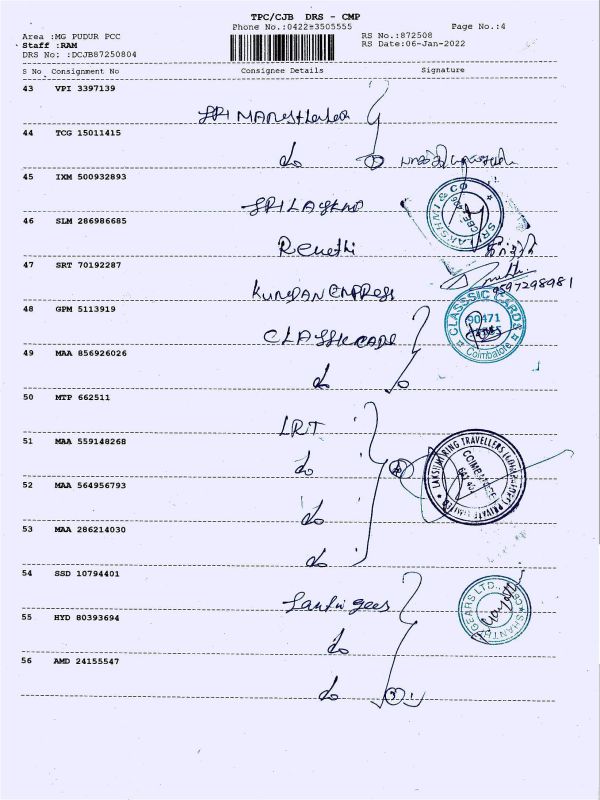 TPC/CJB DRS - CMP
Phone No.:0422=3505555
Page No.:4
Area :MG PUDUR PCC
RS No.:872508
Staff :RAM
RS Date:06-Jan-2022
DRS No: :DCJB87250804
S No Consignment No Consignee Details Signature
43 VPI 3397139
44 TCG 15011415
do
45 IXM 500932893
SRI LAKSHMI & CO
46 SLM 286986685
47 SRT 70192287
9597298981
KUNDAN EXPRESS
48 GPM 5113919
CLASSIC CARDS
90471
Coimbatore
49 MAA 856926026
do
50 MTP 662511
LRT
51 MAA 559148268
do
LAKSHMI RING TRAVELLERS (COIMBATORE) PRIVATE LIMITED
COIMBATORE
52 MAA 564956793
do
53 MAA 286214030
do
54 SSD 10794401
Santhi gears
SHANTHI GEARS LTD.,
55 HYD 80393694
do
56 AMD 24155547
do